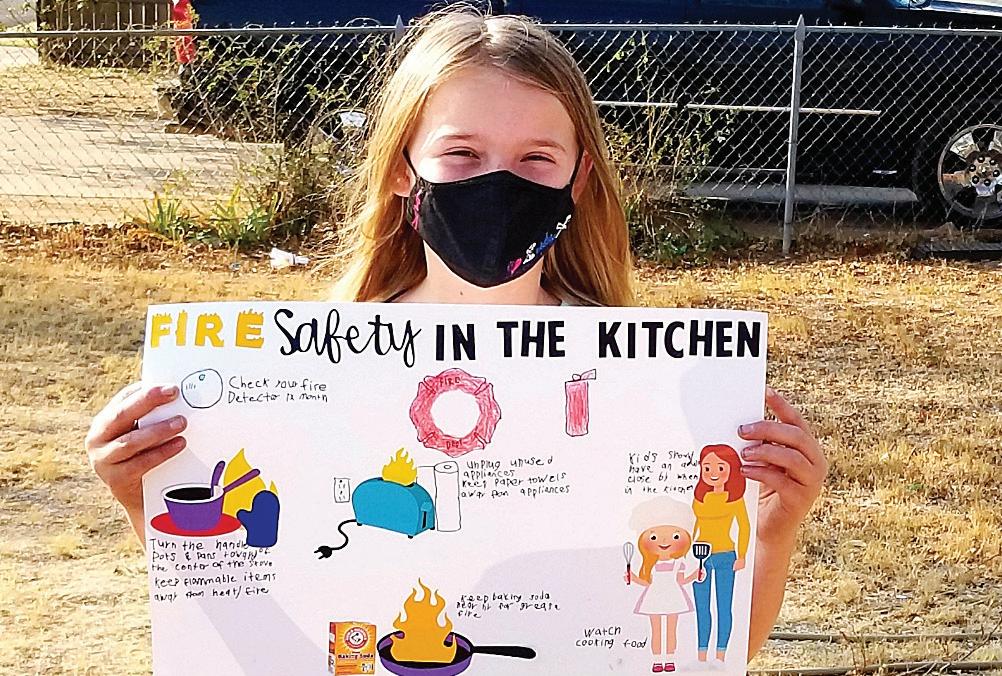 FIRE Safety IN THE KITCHEN
Check your fire
Detector 1x month
FIRE
DEPT
unplug unused
appliances
Keep paper towels
away from appliances
Kids should
have an adult
close by when
in the kitchen
Turn the handle
Pots & Pans toward
the center of the stove
Keep flammable items
away from heat/fire
Keep baking soda
near by for grease
fire
Baking Soda
watch
cooking food